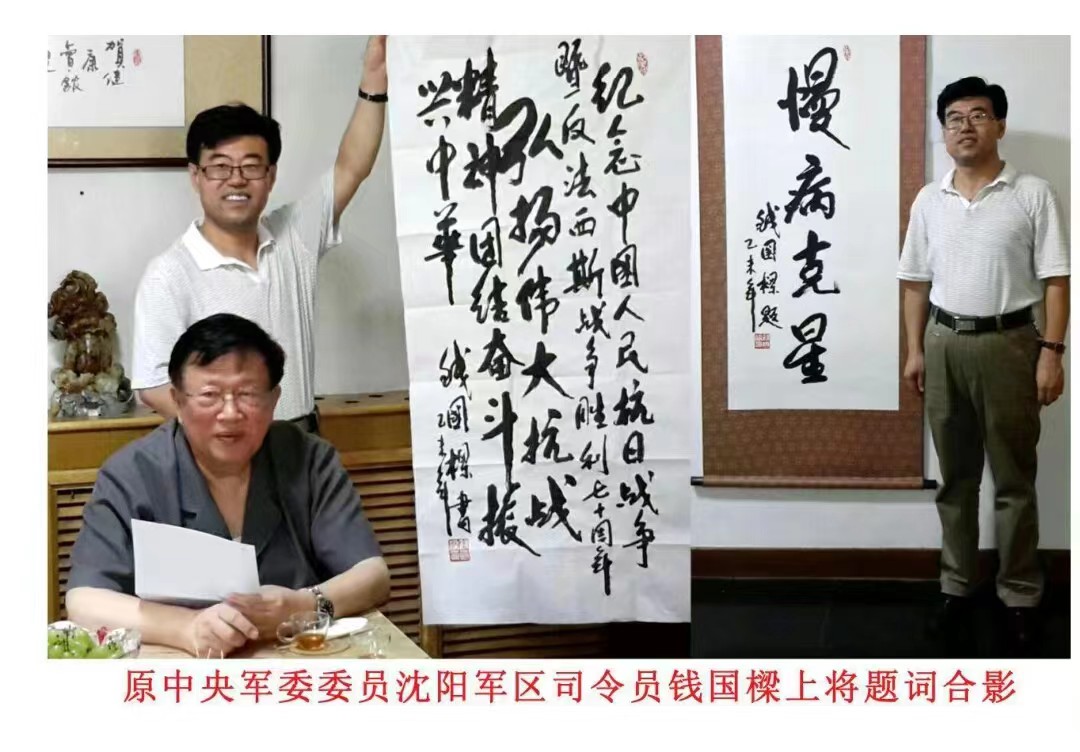 賀健
康
纪念中国人民抗日战争
暨反法西斯战争胜利七十周年
弘扬伟大抗战
精神团结奋斗振
兴中華
钱國樑書
乙未年
慢病克星
钱国樑题
乙未年
原中央军委委员沈阳军区司令员钱国樑上将题词合影